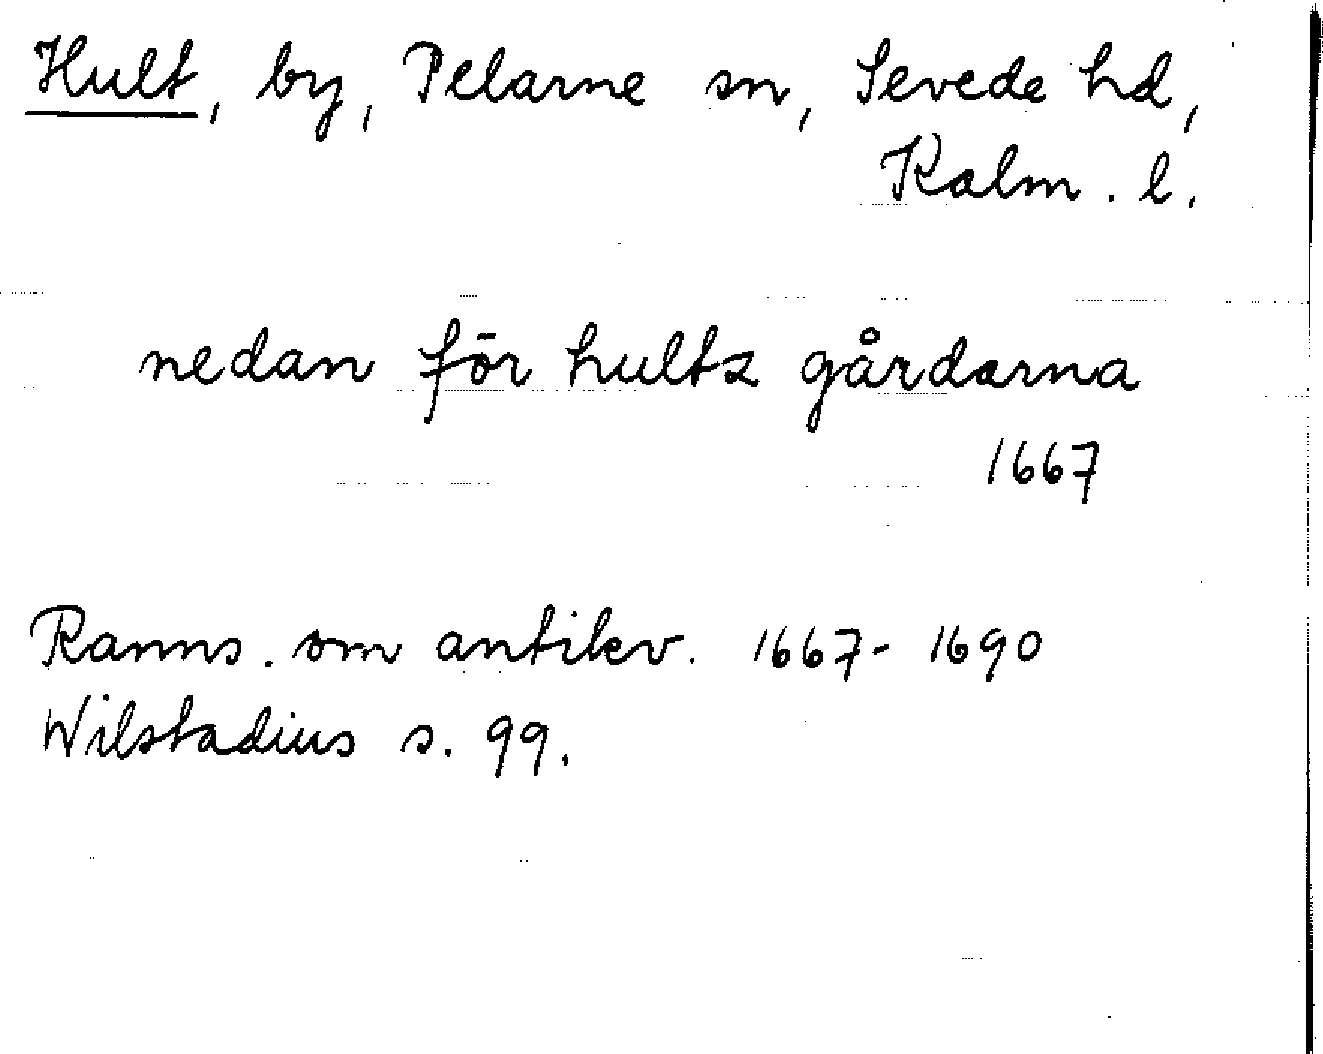 Hult, by, Pelarne sn, Sevede hd,
Kalm. l.
nedan för hultz gårdarna
1667
Ranns. om antikv. 1667-1690
Wilstadius s. 99.